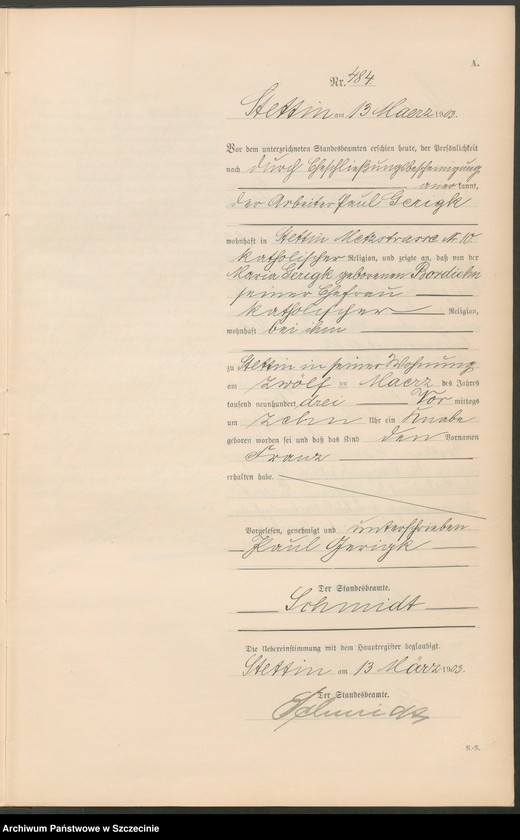 A.
Nr. 484
Stettin am 13 Maerz 1903.
Vor dem unterzeichneten Standesbeamten erschien heute, der Persönlichkeit
nach durch Eheschließungsbescheinigung
anerkannt,
der Arbeiter Paul Gerigk
wohnhaft in Stettin Metzstrasse N. 10
katholischer Religion, und zeigte an, daß von der
Maria Gerigk geborenen
seiner Ehefrau
katholischer Religion,
wohnhaft bei ihm
zu Stettin in seiner Wohnung
am zwölf ten Maerz des Jahres
tausend neunhundert drei Vor mittags
um zehn Uhr ein Knabe
geboren worden sei und daß das Kind den Vornamen
Franz
erhalten habe.
Vorgelesen, genehmigt und unterschrieben
Paul Gerigk
Der Standesbeamte.
Schmidt
Die Uebereinstimmung mit dem Hauptregister beglaubigt.
Stettin am 13 März 1903.
Der Standesbeamte.
Schmidt
Archiwum Państwowe w Szczecinie